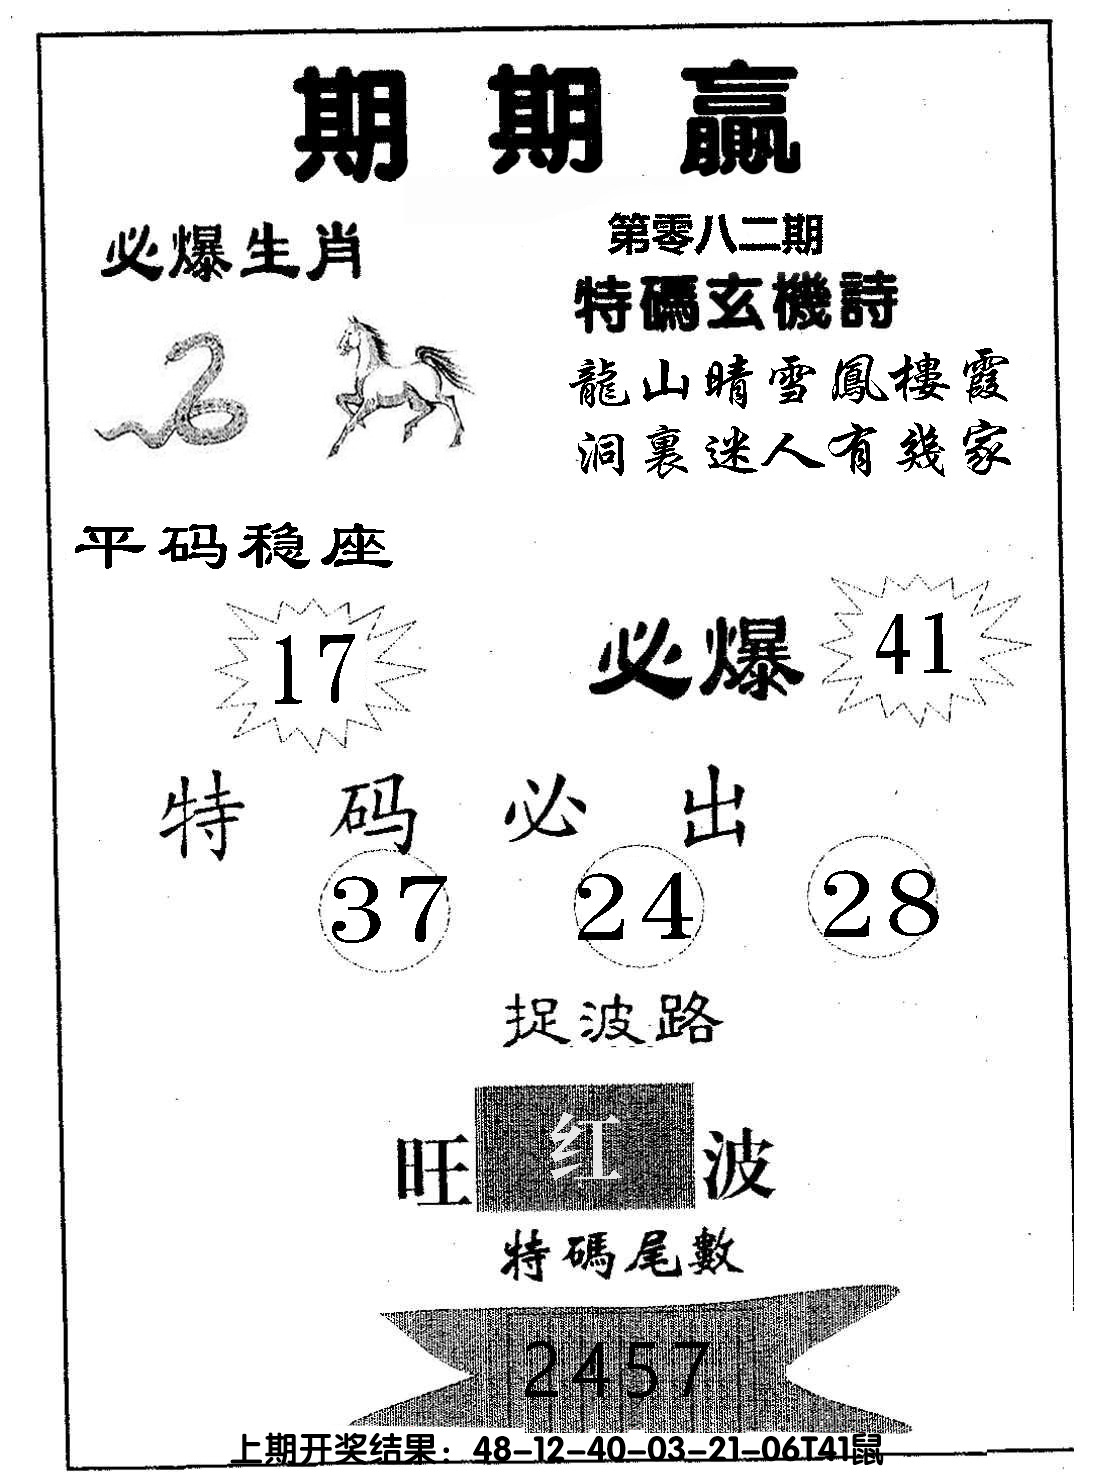 期期贏
必爆生肖
第零八二期
特碼玄機詩
龍山晴雪鳳樓霞
洞裏迷人有幾家
平码稳座
17
必爆 41
特码必出
37 24 28
捉波路
旺红波
特碼尾數
2457
上期开奖结果：48-12-40-03-21-06T41鼠